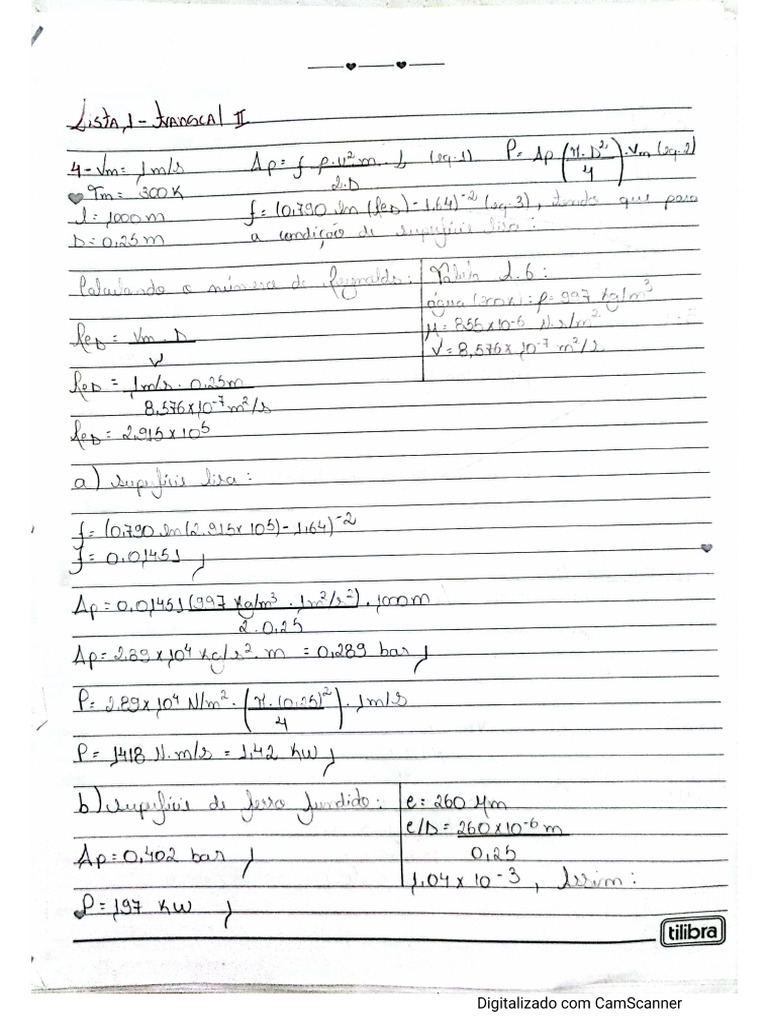 Lista 1 - Transcal II
4 - Vm = 1 m/s    Δp = f ρ.u²m . L (eq.1)    P = Δp (π.D²/4).Vm (eq.2)
2.D
Tm = 300K
L = 1000 m    f = (0,790 ln (ReD) - 1,64)⁻² (eq.3), tendo que para
D = 0,25 m    a condição de superfície lisa:
Calculando o número de Reynolds:    Tabela A.6:
água (300K): ρ = 997 Kg/m³
ReD = Vm . D    μ = 855x10⁻⁶ N.s/m²
ν    ν = 8,576x10⁻⁷ m²/s
ReD = 1m/s . 0,25m
8,576x10⁻⁷ m²/s
ReD = 2,915x10⁵
a) superfície lisa:
f = (0,790 ln (2,915x10⁵) - 1,64)⁻²
f = 0,01451
Δp = 0,01451 (997 Kg/m³ . 1m²/s²) . 1000m
2.0,25
Δp = 2,89x10⁴ Kg/s².m = 0,289 bar
P = 2,89x10⁴ N/m² . (π.(0,25)²/4) . 1m/s
P = 1418 N.m/s = 1,42 KW
b) superfície de ferro fundido:    e = 260 μm
e/D = 260x10⁻⁶ m
Δp = 0,402 bar    0,25
1,04x10⁻³, Assim:
P = 197 KW
tilibra
Digitalizado com CamScanner